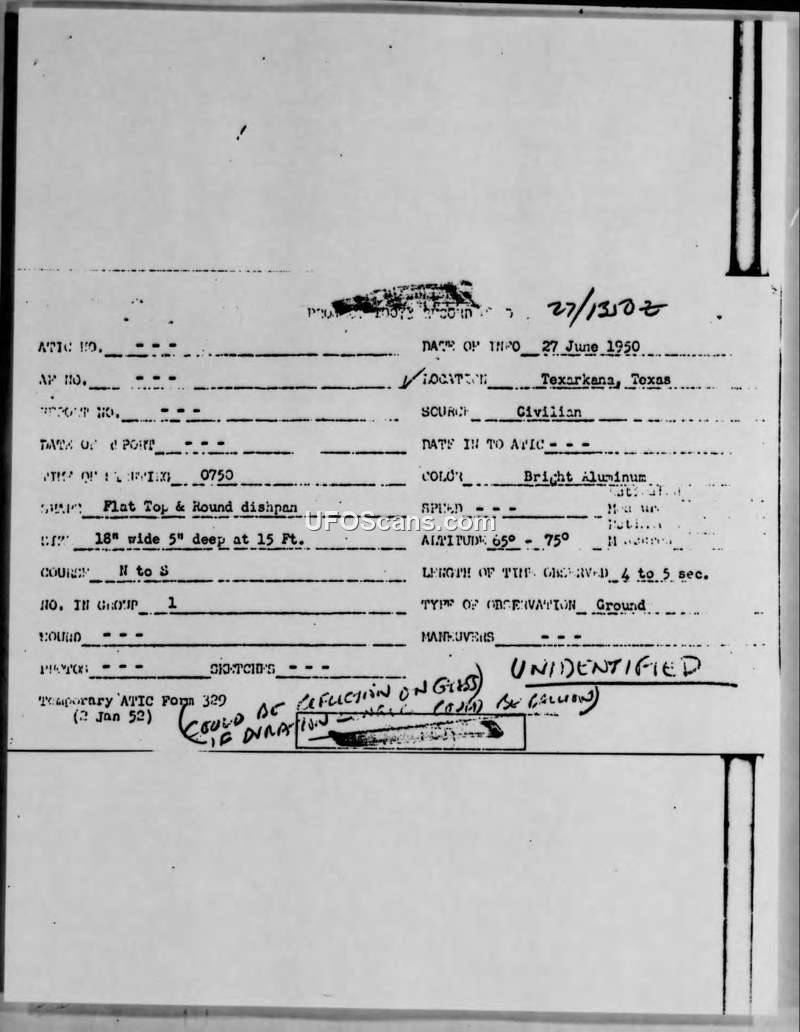 27/1350Z
ATIC NO. - - - DATE OF INFO 27 June 1950
AF NO. - - - ✓ LOCATION Texarkana, Texas
REPORT NO. - - - SOURCE Civilian
DATE OF REPORT - - - DATE IN TO ATIC - - -
TIME OF SIGHTING 0750 COLOR Bright Aluminum
SHAPE Flat Top & Round dishpan SPEED - - -
UFOScans.com
SIZE 18" wide 5" deep at 15 Ft. ALTITUDE 65° - 75°
COURSE N to S LENGTH OF TIME OBSERVED 4 to 5 sec.
NO. IN GROUP 1 TYPE OF OBSERVATION Ground
SOUND - - - MANEUVERS - - -
PHOTOS - - - SKETCHES - - - UNIDENTIFIED
Temporary ATIC Form 329
(2 Jan 52)
(COULD BE REFLECTION ON GLASS)